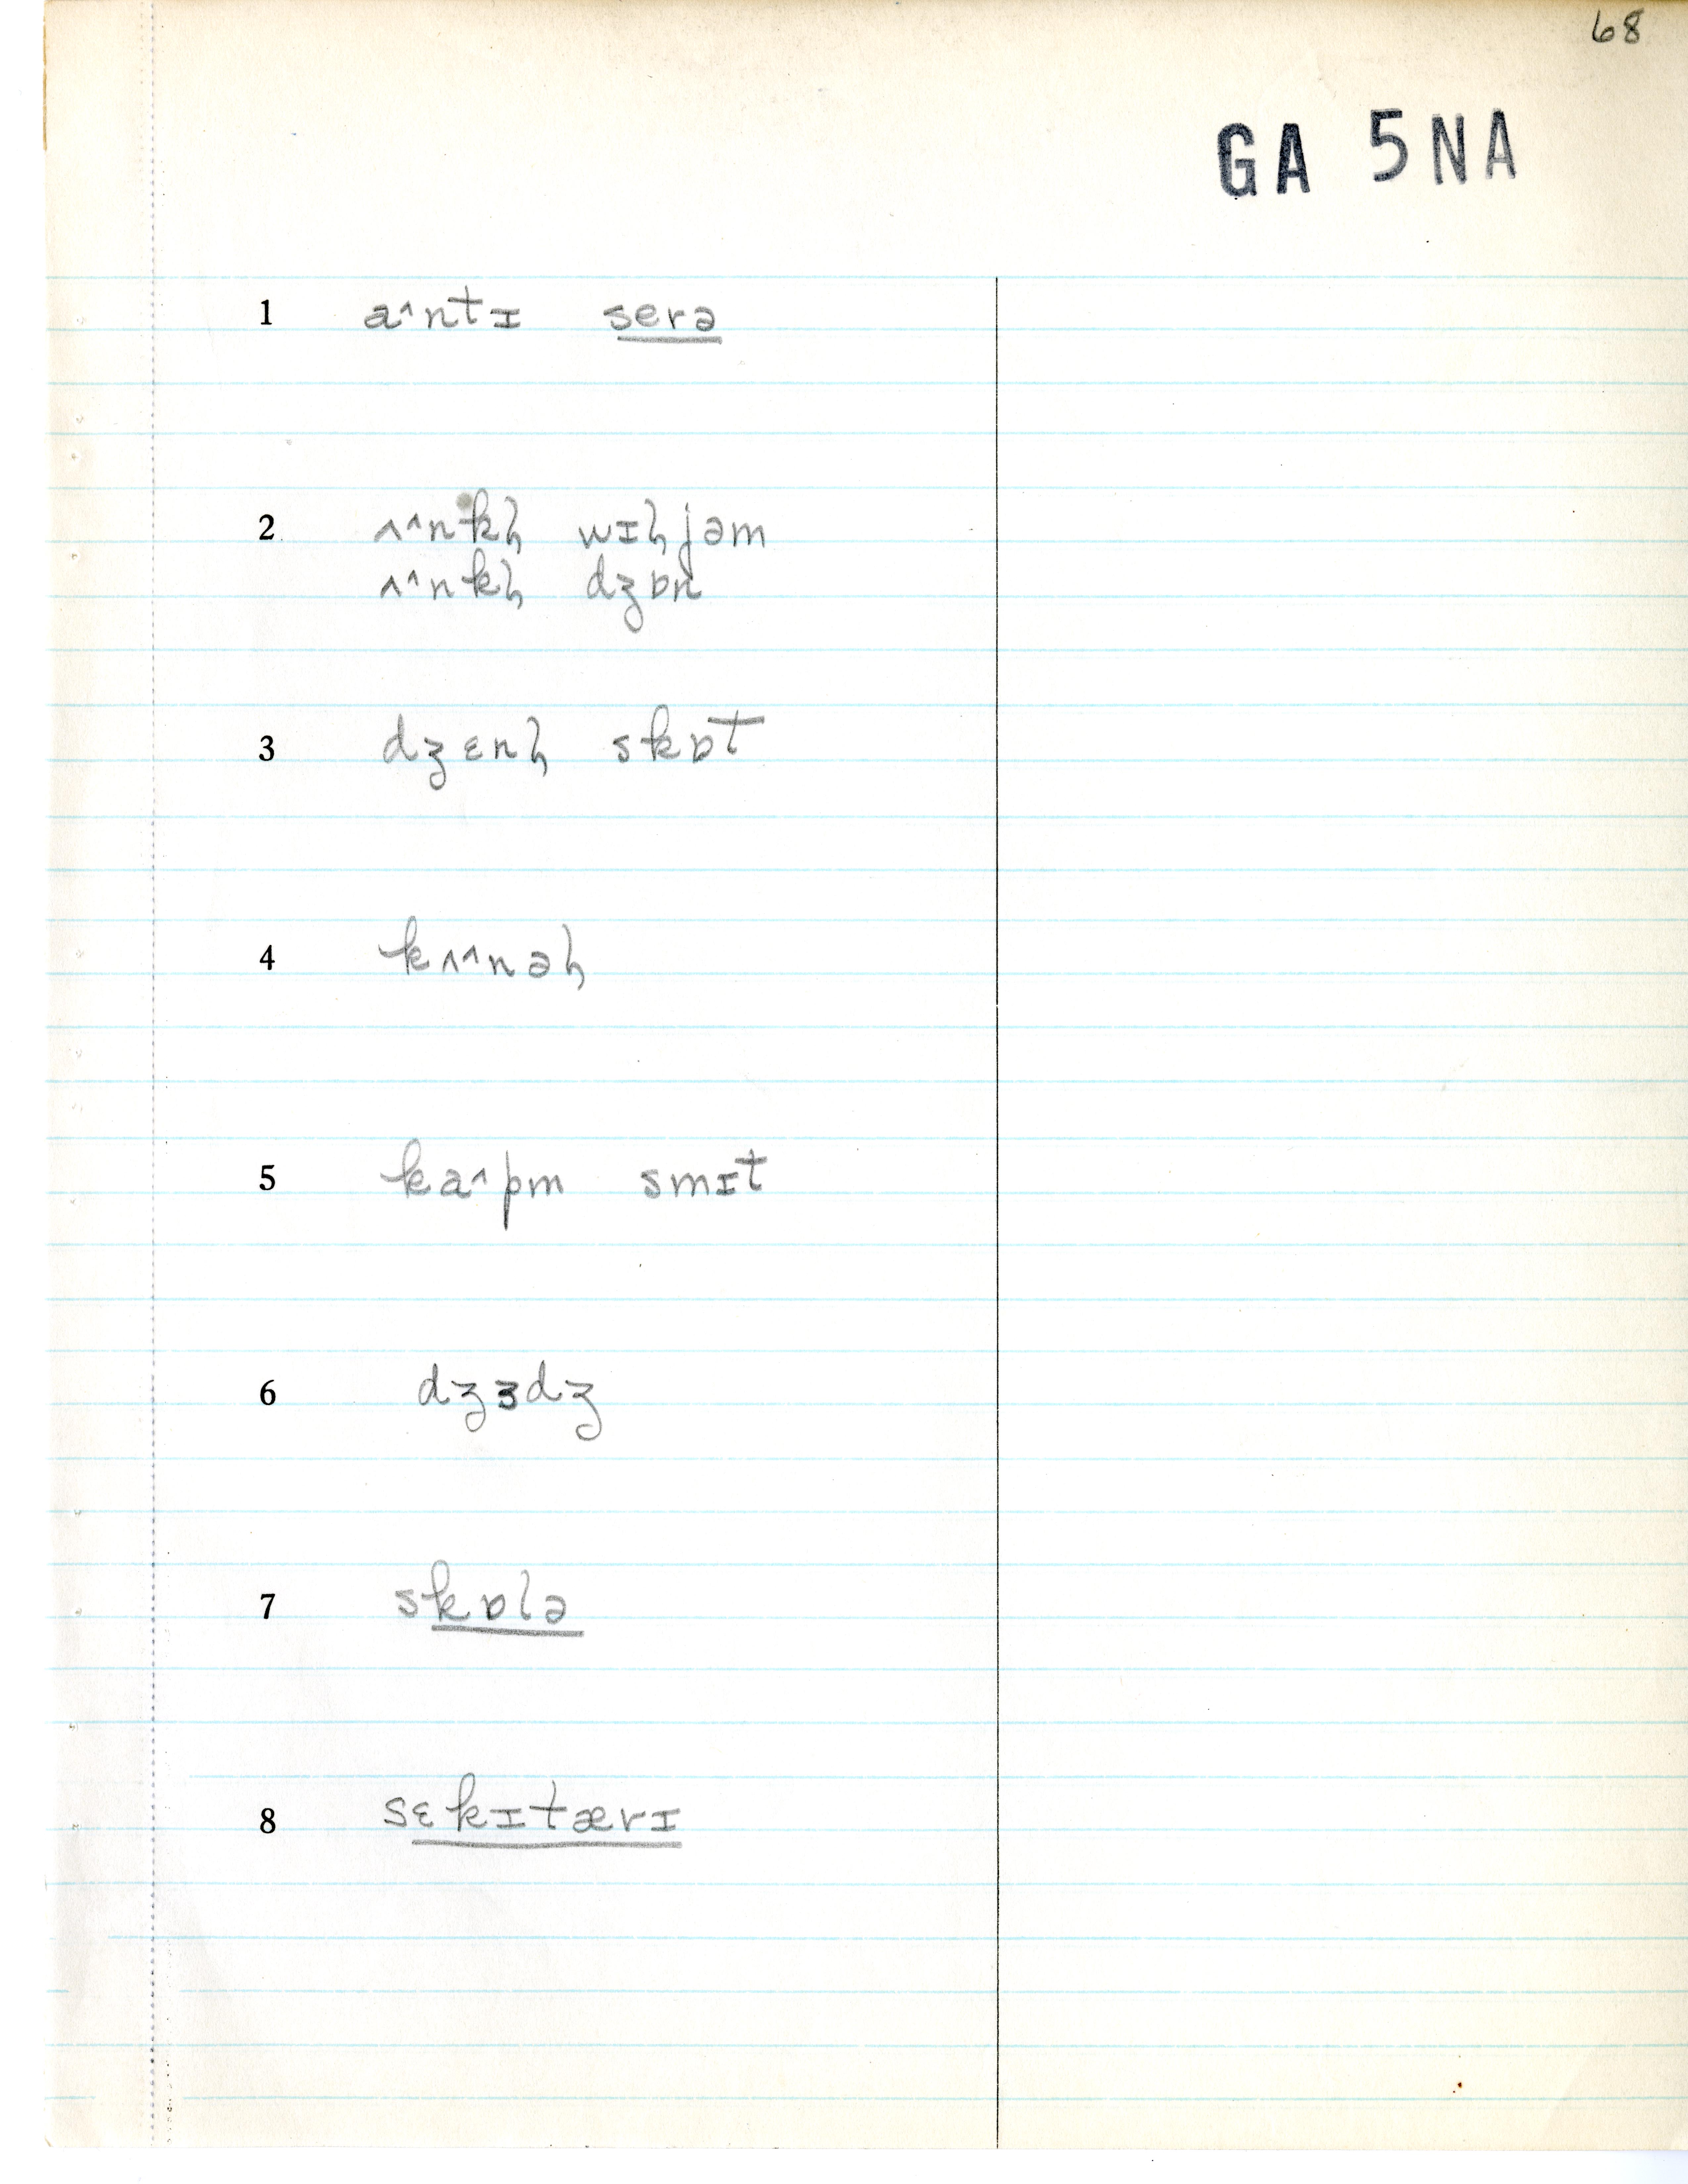 68
GA 5NA
1 a^ntɪ serə
2 ʌ^nkɫ wɪɫjəm
ʌ^nkɫ dʒɒn
3 dʒɛnɫ skɒt
4 kʌ^nəɫ
5 ka^pm smɪt
6 dʒɜdʒ
7 skɒlə
8 sɛkɪtærɪ